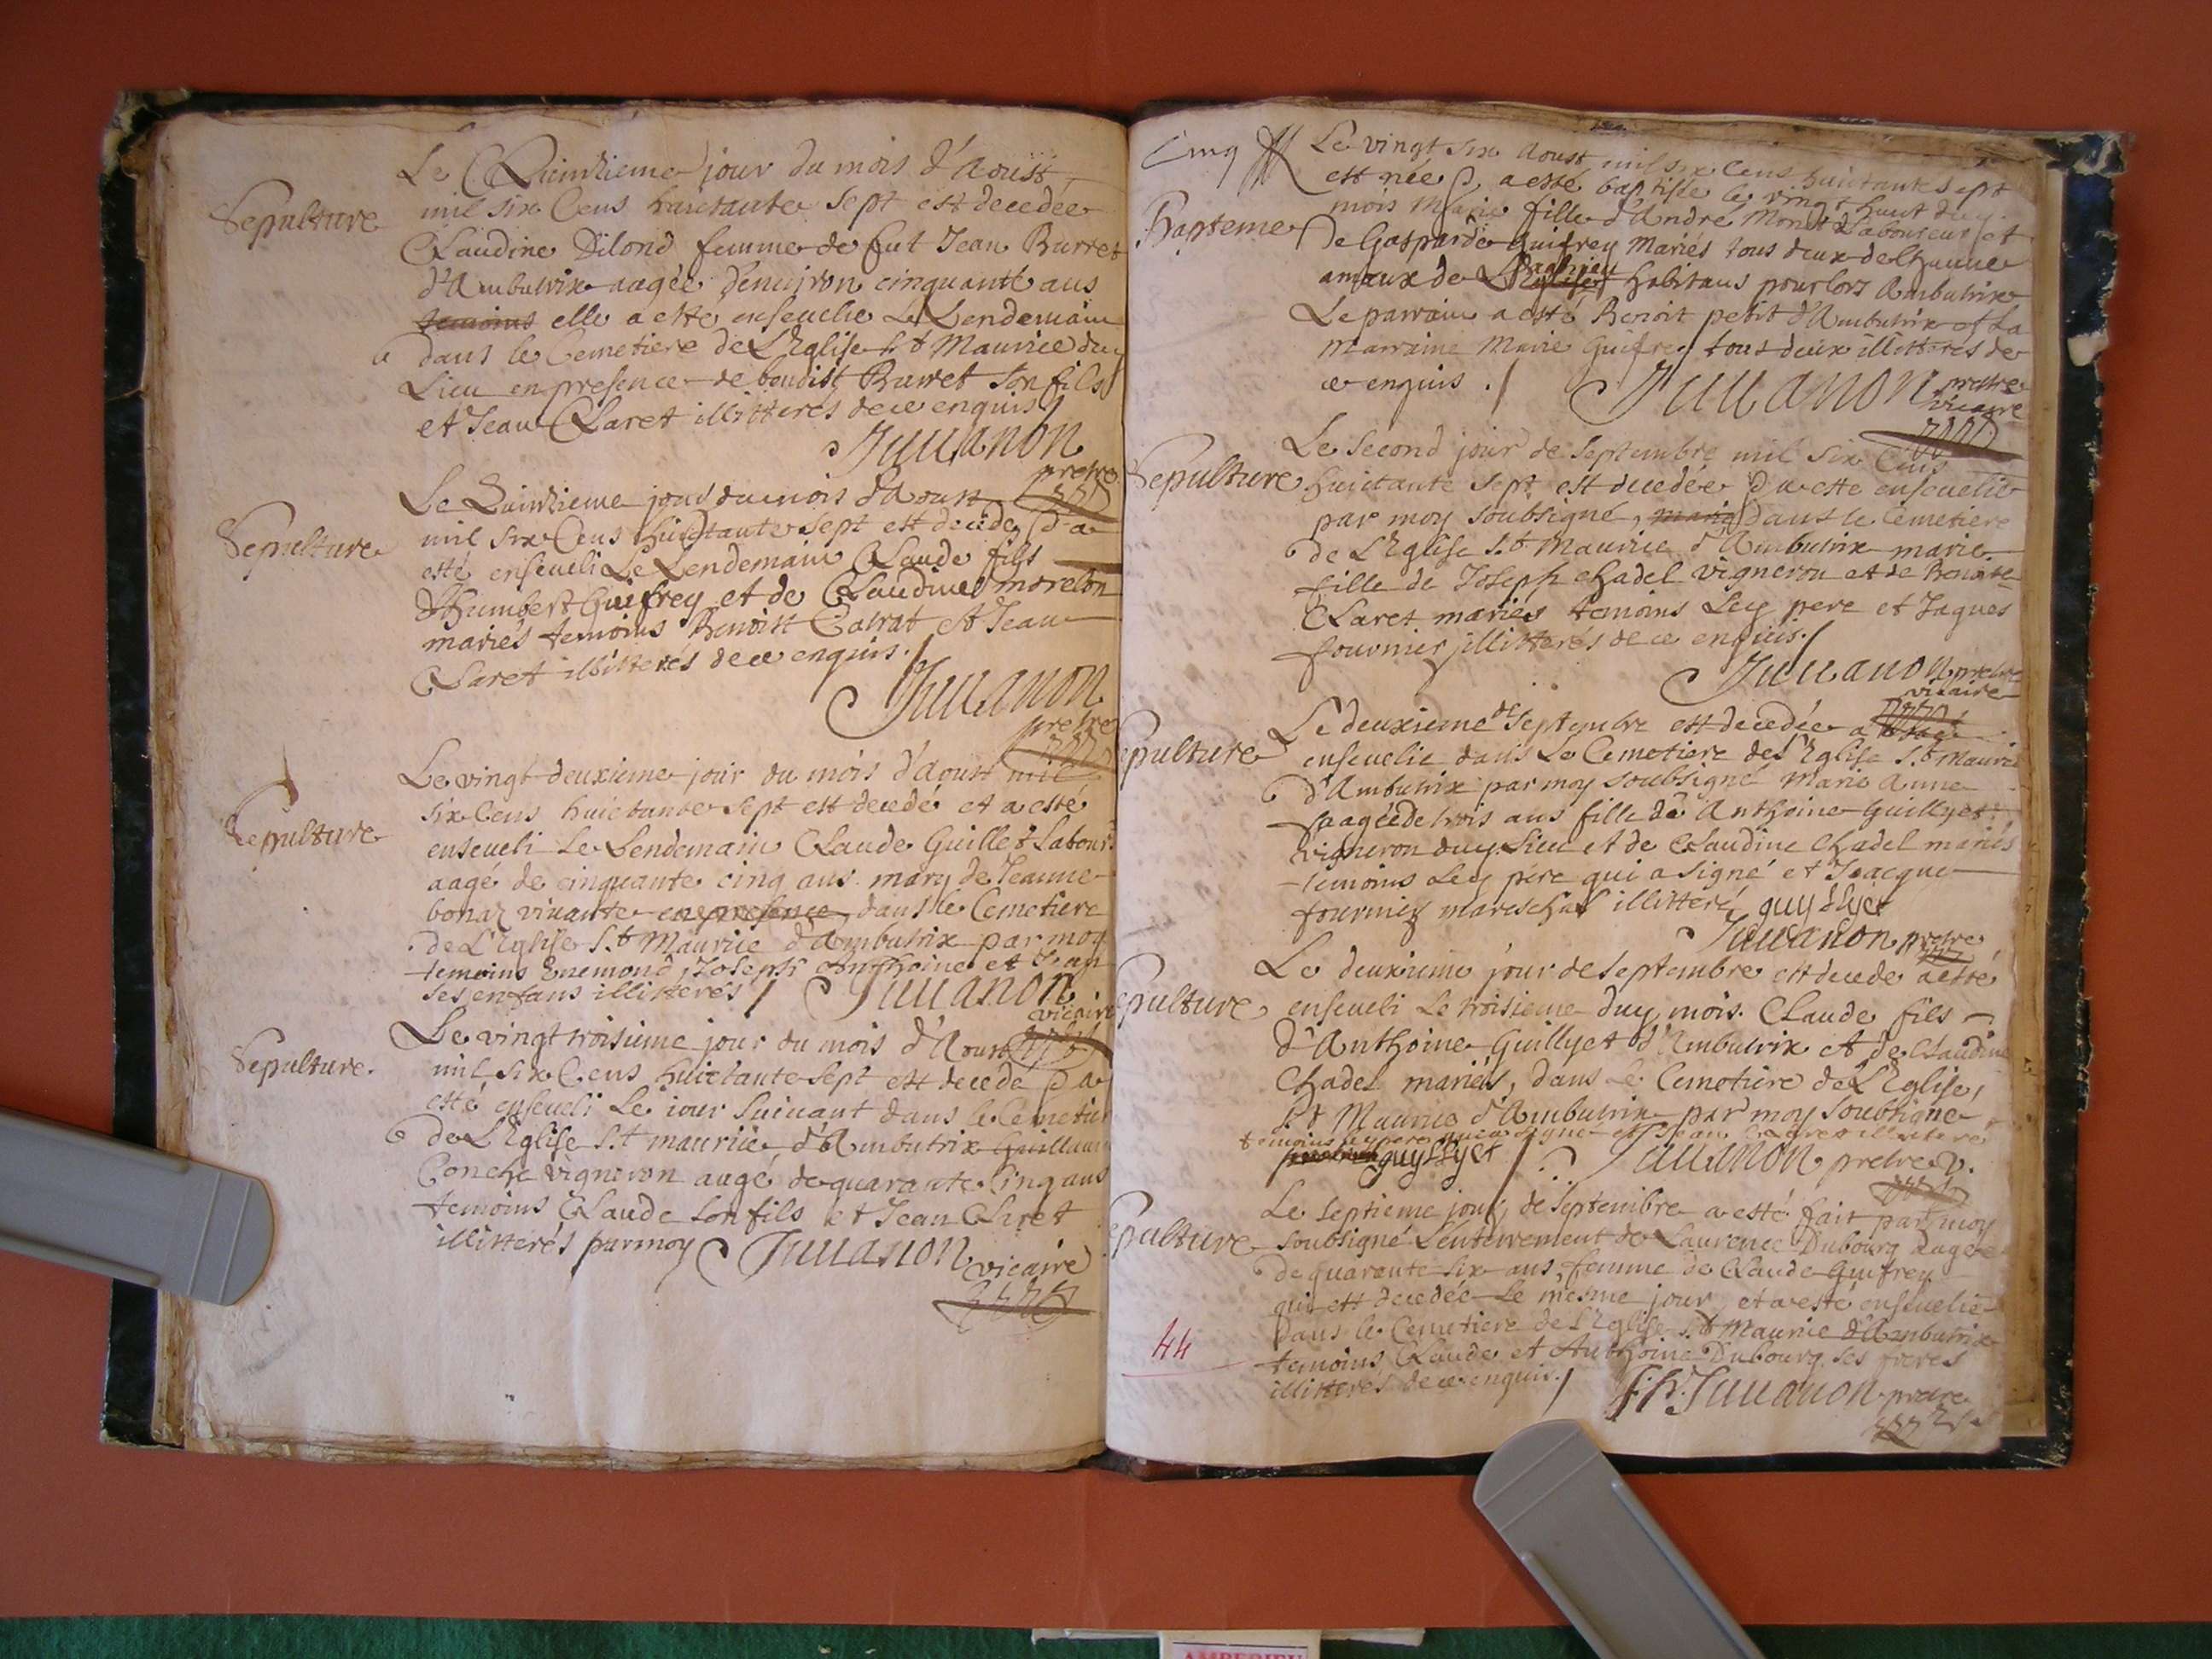 Sepulture
Le Quinzieme jour du mois d'Aoust
mil six Cens huictante sept est decedée
Claudine Dilond femme de fut Jean Burret
d'Ambutrix aagée d'enuiron cinquante ans
temoins elle a esté enseuelie Le Lendemain
dans le Cemetiere de L'Eglise St Maurice duy
Lieu en presence de benoist Burret son fils
et Jean Claret illitterés de ce enquis /
Juuanon
pretre
Sepulture
Le Quinzieme jour du mois d'Aoust
mil six Cens huictante sept est decedé & a
esté enseueli Le Lendemain Claude fils
d'humbert Guifrey et de Claudine morelon
mariés temoins Benoist et Jean
Claret illitterés de ce enquis. /
Juuanon
pretre
Sepulture
Le vingt deuxieme jour du mois d'Aoust mil
six Cens huictante sept est decedé et a esté
enseueli Le Lendemain Claude Guillet Labour.
aagé de cinquante cinq ans mary de Jeanne
bonaz viuante en presence dans le Cemetiere
de L'Eglise St Maurice d'Ambutrix par moy
temoins Enemond, Joseph Anthoine et Jean
ses enfans illitterés / Juuanon
vicaire
Sepulture.
Le vingt troisieme jour du mois d'Aoust
mil six Cens huictante sept est decedé & a
esté enseueli Le iour suiuant dans le Cemetiere
de L'Eglise St maurice d'Ambutrix Guillaume
Conche vigneron aagé de quarante Cinq ans
temoins Claude son fils et Jean Claret
illitterés par moy Juuanon vicaire
Cinq
Bapteme
Le vingt six Aoust mil six Cens huictante sept
est née & a esté baptisée le vingt huit duy
mois Marie fille d'André Monet Laboureur et
De Gasparde Guifrey Mariés tous deux de
habitans pour lors Ambutrix
Le parrain a esté Benoit petit d'Ambutrix et La
marraine Marie Guifrey tous deux illitterés de
ce enquis. / Juuanon prestre
vicaire
Sepulture
Le second jour de Septembre mil six Cens
huictante sept est decedée & a esté enseuelie
par moy soubsigné, marie dans le Cemetiere
de L'Eglise St Maurice d'Ambutrix marie
fille de Joseph chadel vigneron et de Benoite
Claret mariés temoins Ley pere et Jaques
fournier illitterés de ce enquis. /
Juuanon pretre
vicaire
Sepulture
Le deuxieme de Septembre est decedée a
enseuelie dans Le Cemetiere de L'Eglise St Maurice
d'Ambutrix par moy soubsigné Marie Anne
aagée de trois ans fille de Anthoine Guillyet
vigneron duy Lieu et de Claudine Chadel mariés
temoins Ley pére qui a signé et Jeacque
fournier mareschal illitteré guyllyet
Juuanon pretre
Sepulture
Le deuxieme jour de Septembre est decede a esté
enseueli Le troisieme duy mois. Claude fils
d'Anthoine Guillyet d'Ambutrix et de Claudine
Chadel mariés, dans Le Cemetiere de L'Eglise,
St Maurice d'Ambutrix par moy soubsigné
temoins Ley pere qui a signé et Jean Claret illitteré
guyllyet / Juuanon pretre v.
Sepulture
Le septieme jour de Septembre a esté fait par moy
soubsigné L'enterrement de Laurence Dubourg aagée
de quarante six ans, femme de Claude Guifrey
qui est decedée Le mesme jour, et a esté enseuelie
Dans le Cemetiere de L'Eglise St Maurice d'Ambutrix
temoins Claude et Anthoine Dubourg ses freres
illitterés de ce enquis. / Juuanon pretre
44